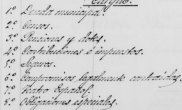 1º Deuda municipal.
2º Censos.
3º Pensiones y dotes.
4º Contribuciones é impuestos.
5º Seguros.
6º Compromisos legalmente contraidos.
7º Teatro Español.
8º Obligaciones especiales.